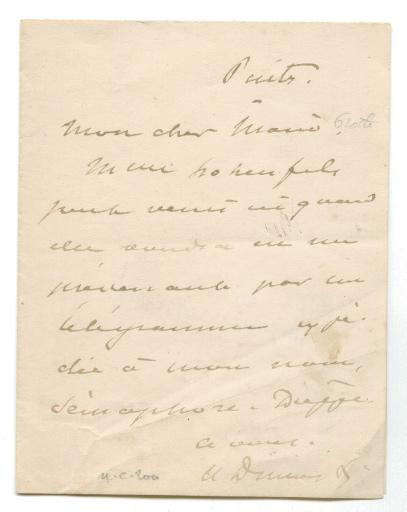 Puits.
Mon cher
Melle Hohenfels
peut venir ici quand
elle voudra en me
prévenant par un
télégramme expé-
dié à mon nom,
sémaphore. Dieppe
à vous.
A Dumas f.